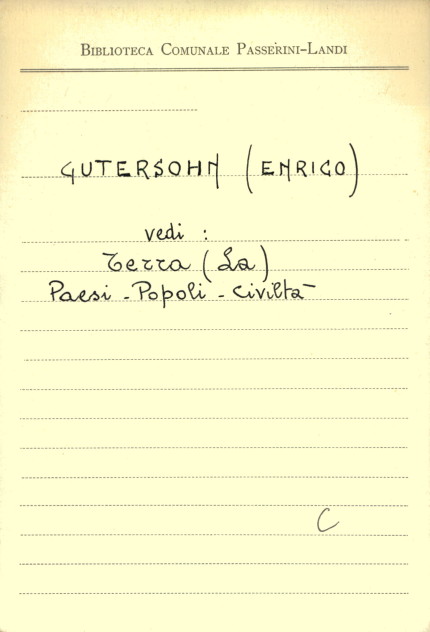 BIBLIOTECA COMUNALE PASSERINI-LANDI
GUTERSOHN (ENRICO)
vedi :
Terra (La)
Paesi - Popoli - Civiltà
C